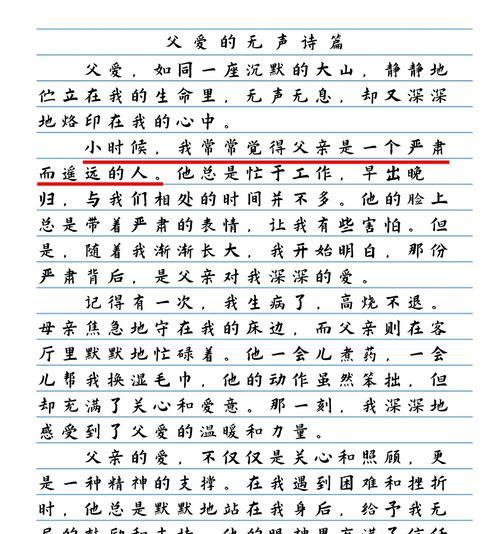 父爱的无声诗篇
父爱，如同一座沉默的大山，静静地
伫立在我的生命里，无声无息，却又深深
地烙印在我的心中。
小时候，我常常觉得父亲是一个严肃
而遥远的人。他总是忙于工作，早出晚
归，与我们相处的时间并不多。他的脸上
总是带着严肃的表情，让我有些害怕。但
是，随着我渐渐长大，我开始明白，那份
严肃背后，是父亲对我深深的爱。
记得有一次，我生病了，高烧不退。
母亲焦急地守在我的床边，而父亲则在客
厅里默默地忙碌着。他一会儿煮药，一会
儿帮我换湿毛巾，他的动作虽然笨拙，但
却充满了关心和爱意。那一刻，我深深地
感受到了父爱的温暖和力量。
父亲的爱，不仅仅是关心和照顾，更
是一种精神的支撑。在我遇到困难和挫折
时，他总是默默地站在我身后，给予我无